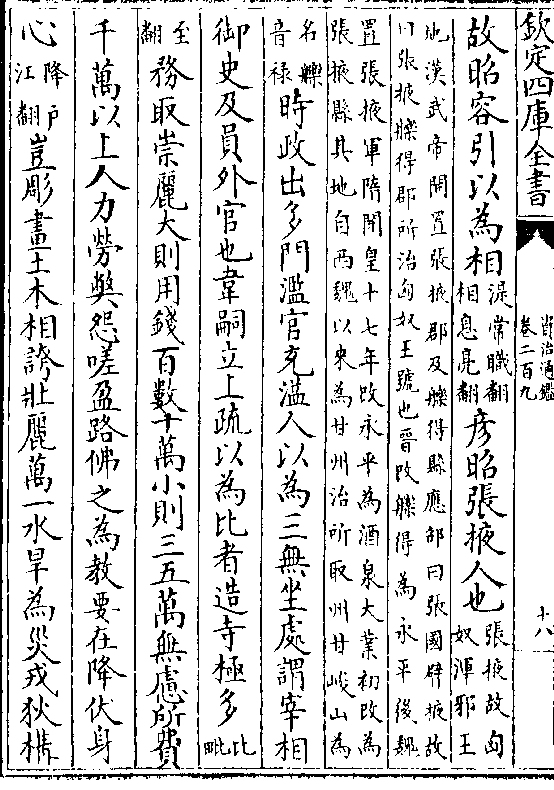 欽定四庫全書
資治通鑑
卷二百九
十八
故昭容引以為相湜常職翻
相息亮翻彦昭張掖人也張掖故匈
奴渾邪王
地漢武帝開置張掖郡及觻得縣應劭曰張國臂掖故
曰張掖觻得郡所治匈奴王號也晉改觻得為永平後魏
置張掖軍隋開皇十七年改永平為酒泉大業初改為
張掖縣其地自西魏以來為甘州治所取州甘峻山為
名觻
音禄時政出多門濫官充溢人以為三無坐處謂宰相
御史及員外官也韋嗣立上疏以為比者造寺極多比
毗
至
翻務取崇麗大則用錢百數十萬小則三五萬無慮所費
千萬以上人力勞弊怨嗟盈路佛之為教要在降伏身
心降户
江翻豈彫畫土木相誇壯麗萬一水旱為災戎狄構